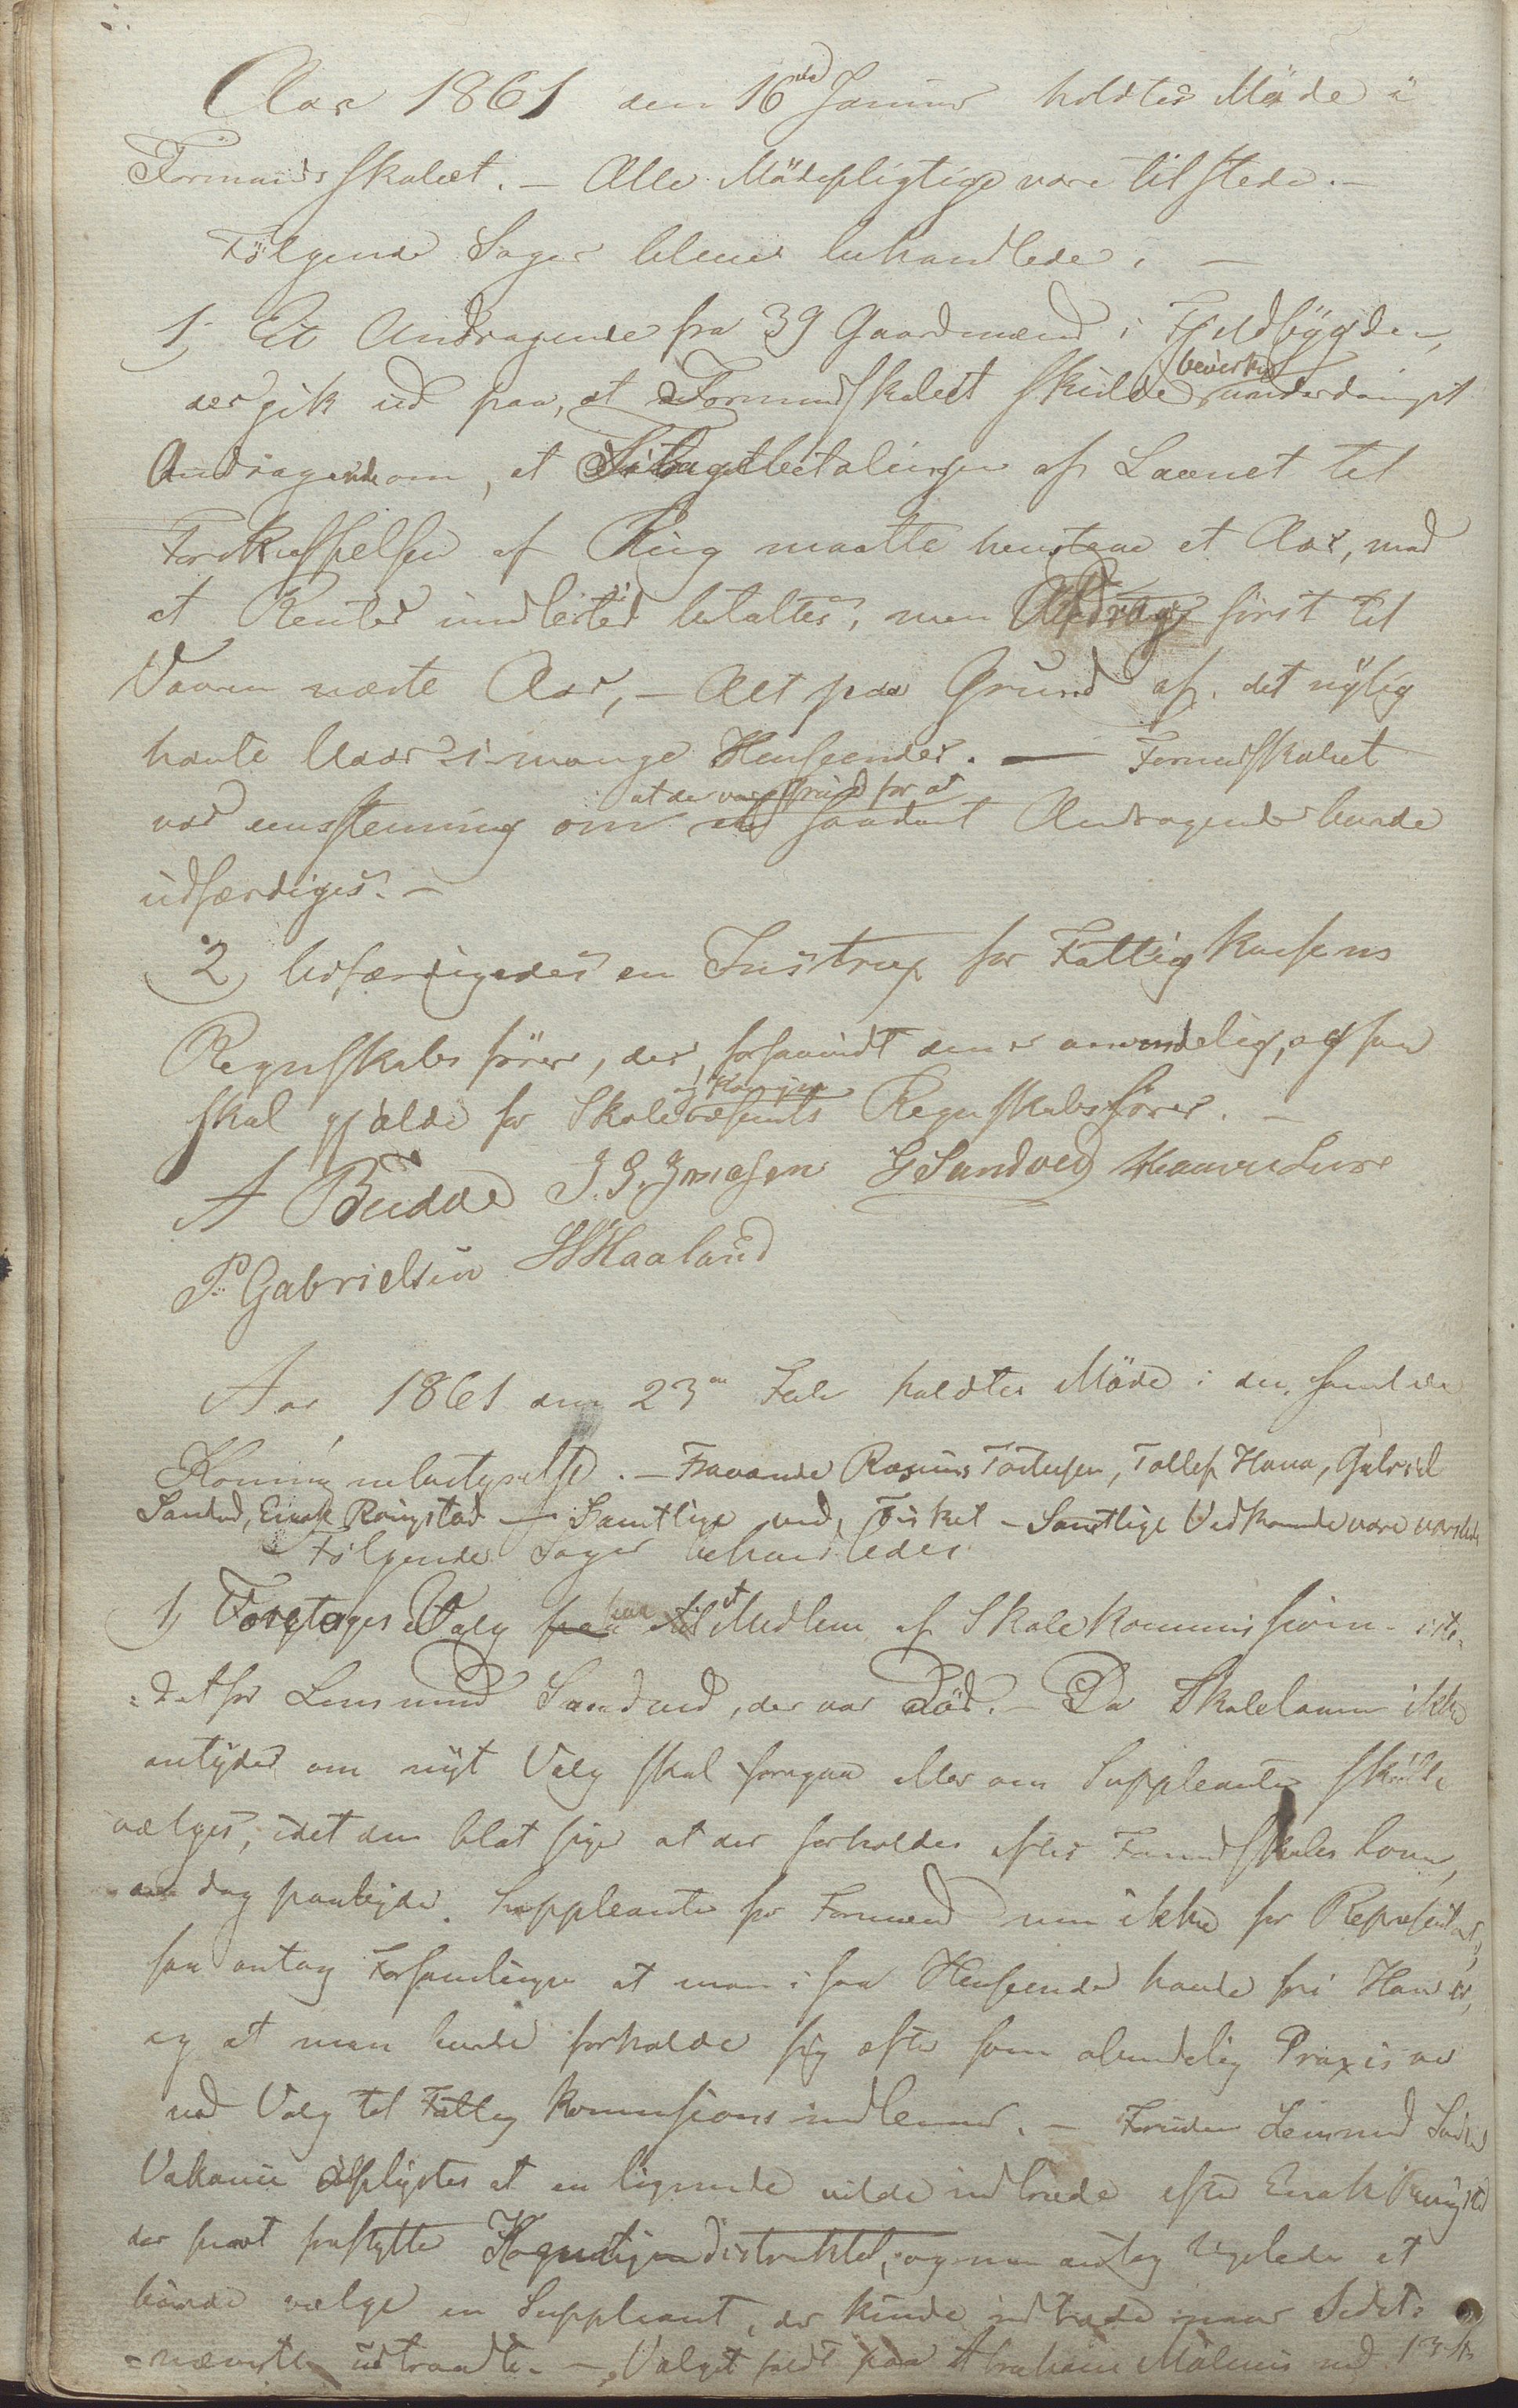 Aar 1861 den 16de Januar holdtes Møde i
Formandsskabet. — Alle Mødepligtige vare tilstede. —
Følgende Sager bleve behandlede. —
1, Et Andragende fra 39 Gaardmænd i Fjeldbygden,
der gik ud paa, at Formandskabet skulde bevirke underdanigst
Andragende om, at Tilbagebetalingen af Laanet til
Forskaffelsen af Rug maatte henstaae et Aar, mod
at Renter imidlertid betaltes, men Afdrag først til
Vaaren næste Aar, — Alt paa Grund af det nylig
havte Uaar i mange Henseender. — Formandskabet
var eenstemmig om at der var Grund for at saadant Andragende burde
udfærdiges. —
2, Udfærdigedes en Instrux for Fattigkassens
Regnskabsfører, der, forsaavidt den er anvendelig, ogsaa
skal gjælde for Skolevæsenets Regnskabsfører. —
A Budde J. G. Jonassen G Sandved
P. Gabrielsen Haaland
Aar 1861 den 23de Feb holdtes Møde i den samlede
Kommunebestyrelse. — Fraværende Rasmus Tostensen, Tollef Hana, Gabriel
Sandved, Enok Ravgstad — Samtlige ved Fisket — Samtlige Vedkommende vare varslede
Følgende Sager behandledes
1, Foretoges Valg paa et Medlem af Skolekommissionen iste-
=detfor Lensmand Sandved, der var død. — Da Skoleloven ikke
antyder om nyt Valg skal foregaa eller om Suppleanter skulle
vælges, idet den blot siger at der forholdes efter Formandskabs Loven,
dog paabyder Suppleanter for Formænd men ikke for Repræsentanter,
saa antog Forsamlingen at man i saa Henseende havde frie Hænder,
og at man burde forholde sig efter som almindelig Praxis var
ved Valg til Fattigkommissionsmedlemmer. — Foruden Lensmand Sandveds
Vakance oplystes at en lignende vilde indtræde efter Enok
der snart fraflytte distriktet, og man antog ligeledes at
burde vælge en Suppleant, der kunde indtræde naar Sidst-
=nævnte udtraadte. — Valget faldt paa Abraham med 13 St